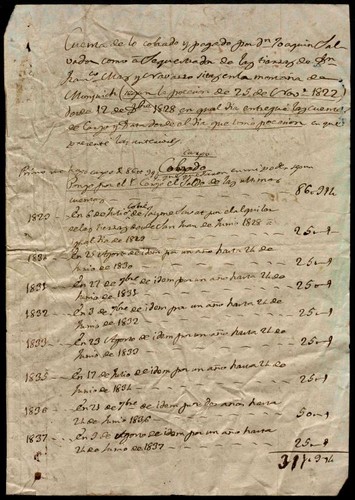 Cuenta de lo cobrado y pagado por dn. Joaquin Sal-
vador como a Sequestrador de las tierras de Dn.
Franco. Mas y Navarro sitas en la montaña de
Monjuich (segun la posesion de 25 de Novre. 1822)
desde 12 de Dbre 1828 en qual dia entregué las cuentas
de Cargo y Data desde el dia que tomé posesion en que
presenté las anteriores
Cargo
Primo me hago cargo de 86 Cobrado
y que en mi poder segun
tengo por el Cargo el Saldo de las ultimas
cuentas 86
1829 En 6 de Julio cobré de Jayme por el alquiler
de las tierras de San Juan de Junio 1828 a
igual dia de 1829 25
1830 En 28 Agosto de idem por un año hasta 24 de
Junio de 1830 25
1831 En 27 de 7bre de idem por un año hasta 24 de
Junio de 1831 25
1832 En 3 de 7bre de idem por un año hasta 24 de
Junio de 1832 25
1833 En 29 Agosto de idem por un año hasta 24 de
Junio de 1833 25
1835 En 17 de Julio de idem por un año hasta 24 de
Junio de 1834 25
1836 En 21 de 7bre de idem por dos años hasta
24 de Junio de 1836 50
1837 En 9 de Agosto de idem por un año hasta
24 de Junio de 1837 25
311